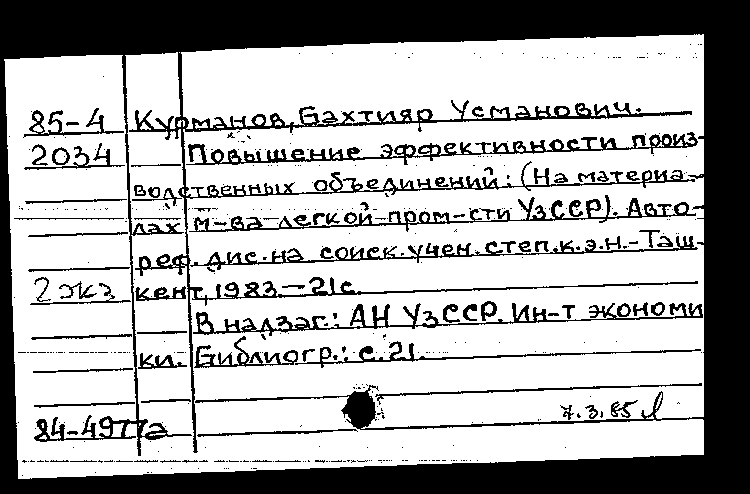 85-4 Курманов, Бахтияр Усманович.
2034 Повышение эффективности произ-
водственных объединений: (На материа-
лах м-ва легкой пром-сти УзССР). Авто-
реф. дис. на соиск. учен. степ. к.э.н. - Таш-
2 экз кент, 1983. - 21 с.
В надзаг.: АН УзССР. Ин-т экономи
ки. Библиогр.: с. 21.
7.3.85
84-4977а